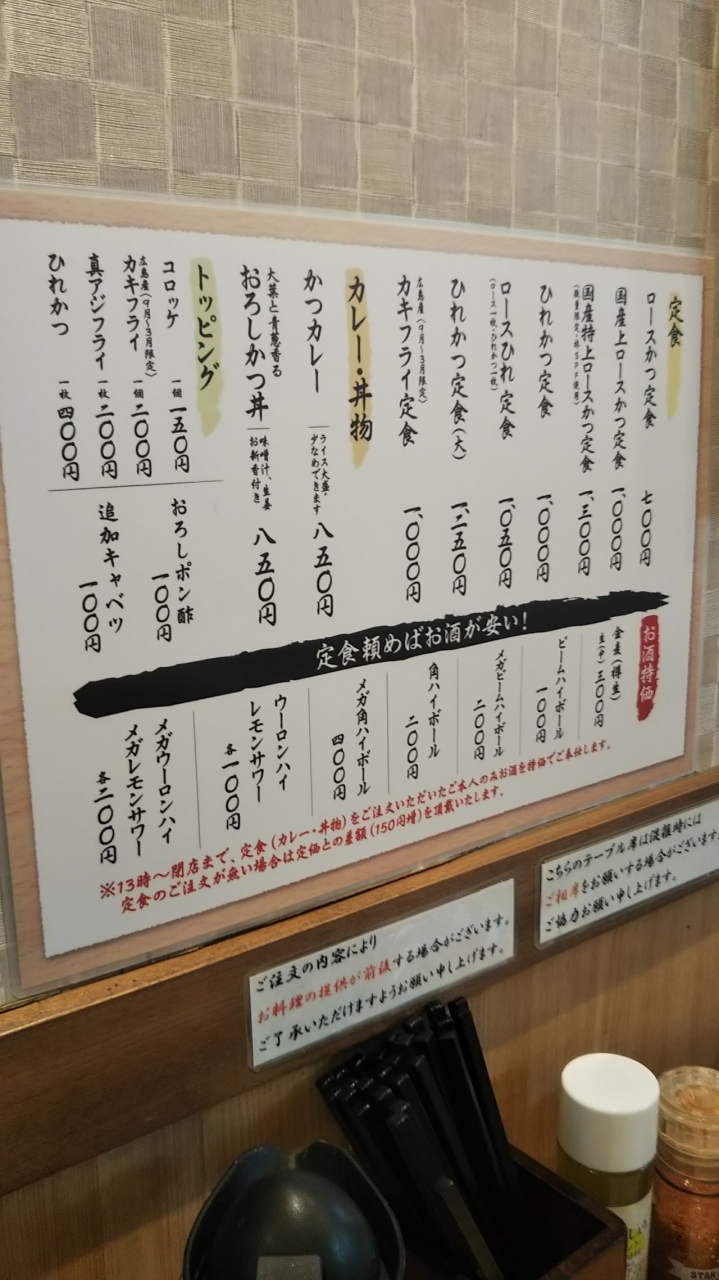 定食
ロースかつ定食 七〇〇円
国産上ロースかつ定食 一、〇〇〇円
国産特上ロースかつ定食 一、三〇〇円
(数量限定・林SPF使用)
ひれかつ定食 一、〇〇〇円
ロースひれ定食 一、〇五〇円
(ロース一枚・ひれかつ一枚)
ひれかつ定食(大) 一、二五〇円
広島産(9月〜3月限定)
カキフライ定食 一、〇〇〇円
カレー・丼物
かつカレー ライス大盛・少なめできます 八五〇円
大葉と青葱香る
おろしかつ丼 味噌汁、生姜 お新香付き 八五〇円
トッピング
コロッケ 一個 一五〇円
広島産(9月〜3月限定)
カキフライ 一個 二〇〇円
真アジフライ 一枚 二〇〇円
ひれかつ 一枚 四〇〇円
おろしポン酢 一〇〇円
追加キャベツ 一〇〇円
定食頼めばお酒が安い!
お酒特価
金麦(樽生)
生(中) 三〇〇円
ビームハイボール 一〇〇円
メガビームハイボール 二〇〇円
角ハイボール 二〇〇円
メガ角ハイボール 四〇〇円
ウーロンハイ
レモンサワー 各一〇〇円
メガウーロンハイ
メガレモンサワー 各二〇〇円
※13時〜閉店まで、定食(カレー・丼物)をご注文いただいたご本人のみお酒を特価でご奉仕します。
定食のご注文が無い場合は定価との差額(150円増)を頂戴いたします。
ご注文の内容により
お料理の提供が前後する場合がございます。
ご了承いただけますようお願い申し上げます。
こちらのテーブル席は混雑時には
ご相席をお願いする場合がございます。
ご協力お願い申し上げます。